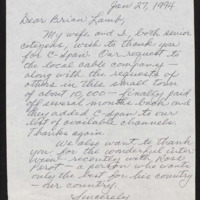 Jan 27, 1994
Dear Brian Lamb,
My wife, and I, both senior
citizens, wish to thank you
for C-span. Our request to
the local cable company -
along with the requests of
others in this small town
of about 10,000 - finally paid
off several months back and
they added C-span to our
list of available channels.
Thanks again.
We also want to thank
you for the wonderful inter
view recently with Ross
Perot - a person who wants
only the best for his country
- our country.
Sincerely